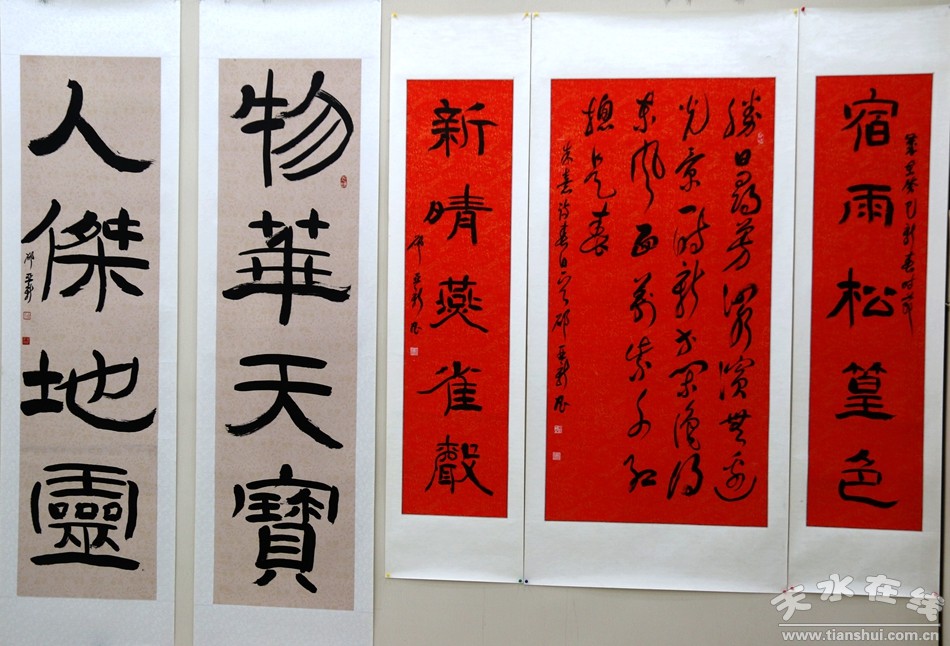 宿雨松篁色
癸巳新春
勝日尋芳泗水濱無邊
光景一時新等閒識得
東風面萬紫千紅
總是春
朱熹詩春日
新晴燕雀聲
物華天寶
人傑地靈
天水在线
www.tianshui.com.cn